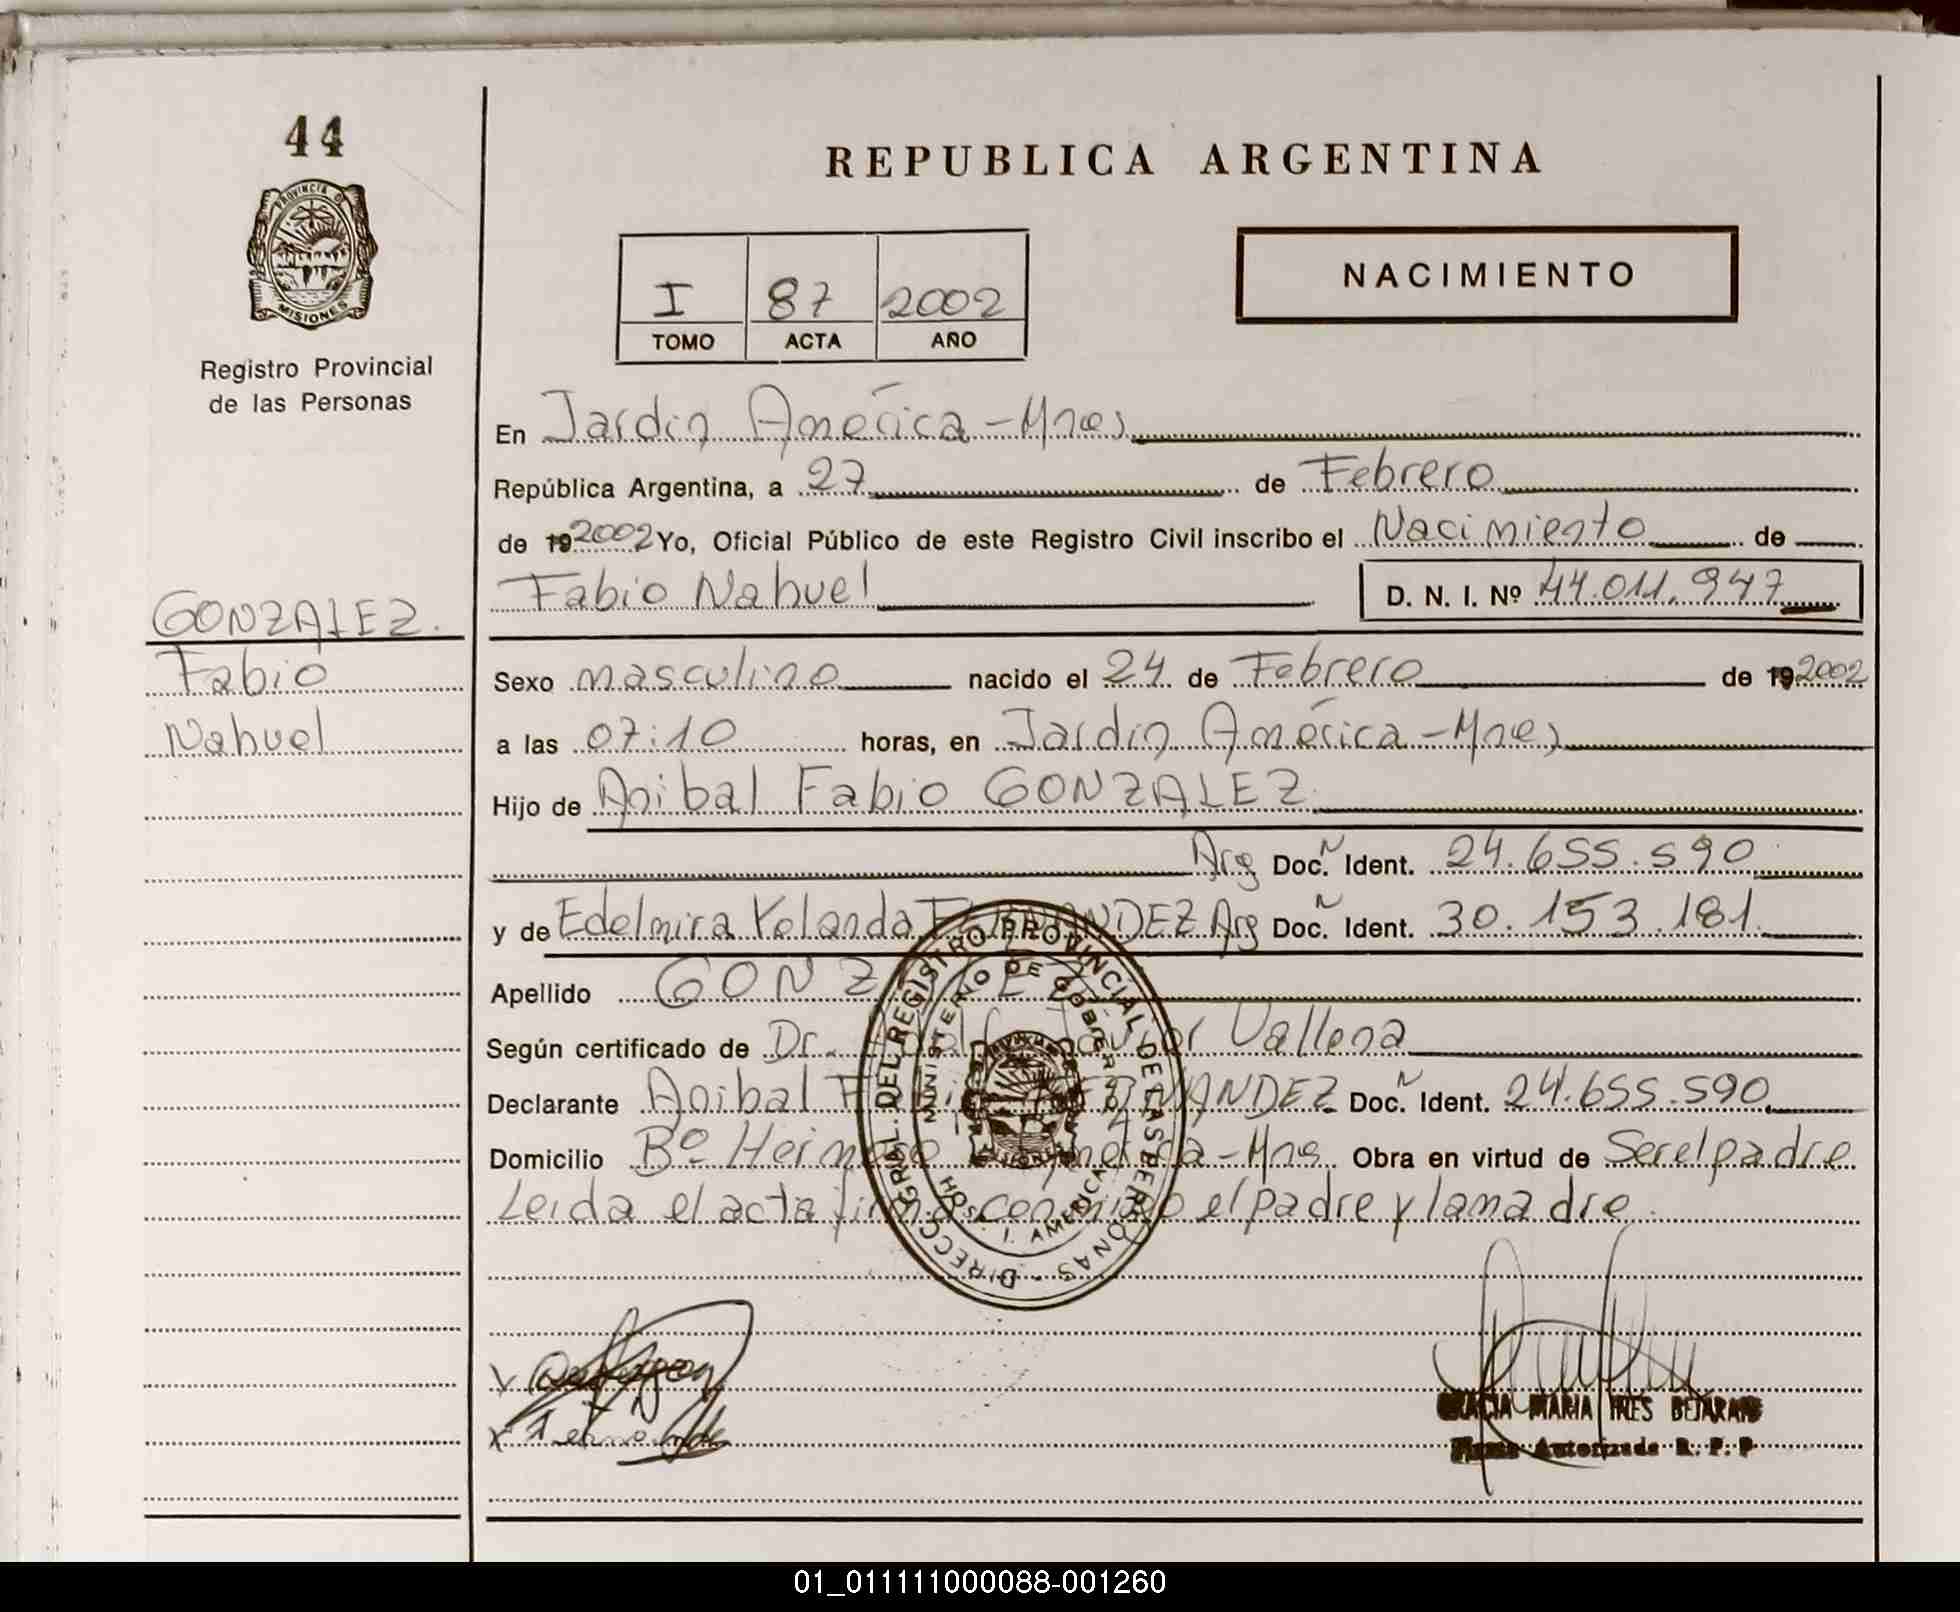 44
PROVINCIA D
MISIONES
Registro Provincial
de las Personas
GONZALEZ.
Fabio
Nahuel
REPUBLICA ARGENTINA
I 87 2002
TOMO ACTA AÑO
NACIMIENTO
En Jardín América-Mnes
República Argentina, a 27 de Febrero
de 19 2002 Yo, Oficial Público de este Registro Civil inscribo el Nacimiento de
Fabio Nahuel D. N. I. Nº 44.011.947
Sexo masculino nacido el 24 de Febrero de 19 2002
a las 07:10 horas, en Jardín América-Mnes
Hijo de Anibal Fabio GONZALEZ
Arg Doc. Ident. 24.655.590
y de Edelmira Yolanda Arg Doc. Ident. 30.153.181
Apellido GONZ
Según certificado de Dr. Vallena
Declarante Anibal Doc. Ident. 24.655.590
Domicilio Bº -Mns Obra en virtud de Ser el padre
Leida el acta conmigo el padre y la madre
DIRECC. GRAL. DEL REGISTRO PROVINCIAL DE LAS PERSONAS
MINISTERIO DE GOBIERNO
HOSP. J. AMERICA
MARIA INES BEJARANO
Firma Autorizada R. P. P
01_011111000088-001260